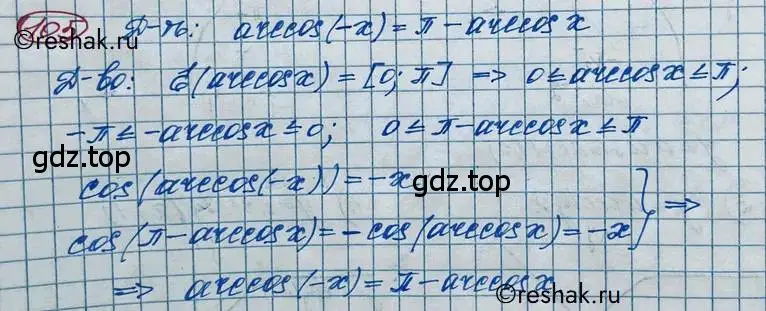 105 Д-ть: arccos(-x) = π - arccos x
Д-во: E(arccos x) = [0; π] => 0 ≤ arccos x ≤ π;
-π ≤ -arccos x ≤ 0; 0 ≤ π - arccos x ≤ π
gdz.top
cos(arccos(-x)) = -x
gdz.top
cos(π - arccos x) = -cos(arccos x) = -x } =>
=> arccos(-x) = π - arccos x
©reshak.ru
©reshak.ru
©reshak.ru